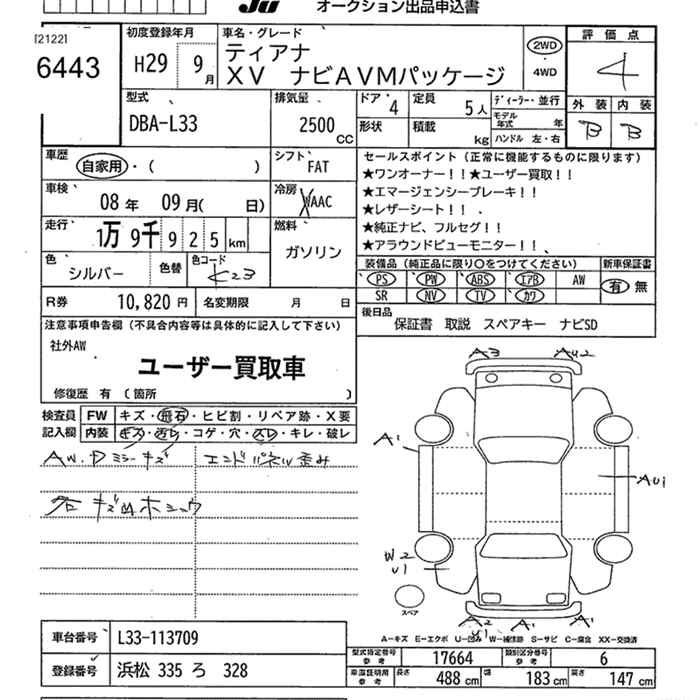 Ju オークション出品申込書
[2122]
6443
初度登録年月
H29 9月
車名・グレード
ティアナ
XV ナビAVMパッケージ
2WD
4WD
評価点
4
外装 内装
B B
型式
DBA-L33
排気量
2500 CC
ドア 4
定員 5人
形状
積載 kg
ディーラー・並行
モデル年式 年
ハンドル 左・右
車歴
自家用・( )
シフト
FAT
車検
08年 09月( 日)
冷房
AAC
走行
1万9千925km
燃料
ガソリン
色
シルバー
色替
色コード
K23
R券 10,820円
名変期限 月 日
セールスポイント(正常に機能するものに限ります)
★ワンオーナー!!★ユーザー買取!!
★エマージェンシーブレーキ!!
★レザーシート!!
★純正ナビ、フルセグ!!
★アラウンドビューモニター!!
装備品(純正品に限り〇をつけてください) 新車保証書
PS PW ABS エアB AW
有 無
SR NV TV カワ
後日品
保証書 取説 スペアキー ナビSD
注意事項申告欄(不具合内容等は具体的に記入して下さい)
社外AW
ユーザー買取車
修復歴 有 (箇所 )
検査員
記入欄
FW キズ・飛石・ヒビ割・リペア跡・X要
内装 キズ・汚レ・コゲ・穴・スレ・キレ・破レ
AW.P ミラーキズ エンドパネル歪み
A3 AU2
A1
AU1
W2
U1
スペア
A2 A1
U1
A-キズ E-エクボ U-凹み W-補修跡 S-サビ C-腐食 XX-交換済
車台番号 L33-113709
登録番号 浜松 335 ろ 328
型式指定番号 参考 17664
類別区分番号 参考 6
車庫証明用 参考
長さ 488 cm
幅 183 cm
高さ 147 cm